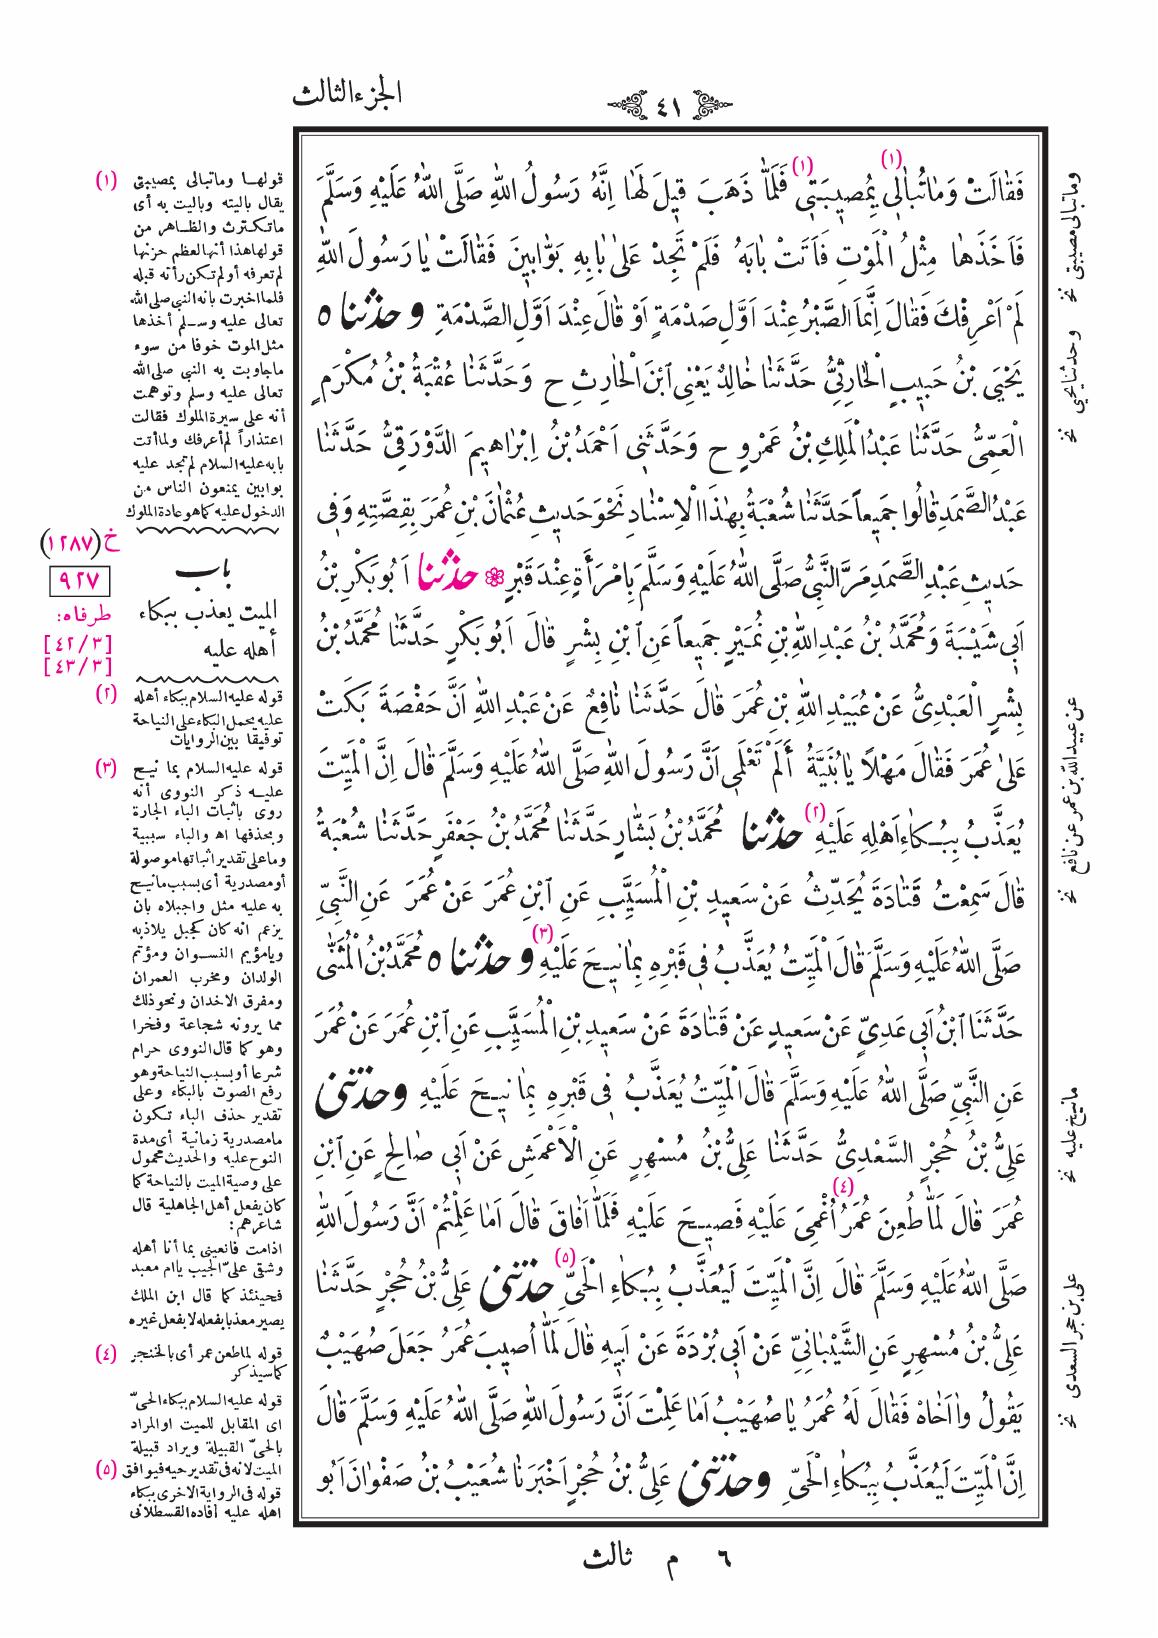 الجزء الثالث
٤١
فَقَالَتْ وَمَا تُبَالِي (١) بِمُصِيبَتِي (١) فَلَمَّا ذَهَبَ قِيلَ لَهَا اِنَّهُ رَسُولُ اللهِ صَلَّى اللهُ عَلَيْهِ وَسَلَّمَ
فَاَخَذَهَا مِثْلُ الْمَوْتِ فَاَتَتْ بَابَهُ فَلَمْ تَجِدْ عَلَى بَابِهِ بَوَّابِينَ فَقَالَتْ يَا رَسُولَ اللهِ
لَمْ اَعْرِفْكَ فَقَالَ اِنَّمَا الصَّبْرُ عِنْدَ اَوَّلِ صَدْمَةٍ اَوْ قَالَ عِنْدَ اَوَّلِ الصَّدْمَةِ وحدثناه
يَحْيَى بْنُ حَبِيبٍ الْحَارِثِيُّ حَدَّثَنَا خَالِدٌ يَعْنِى ابْنَ الْحَارِثِ ح وَحَدَّثَنَا عُقْبَةُ بْنُ مُكْرَمٍ
الْعَمِّىُّ حَدَّثَنَا عَبْدُ الْمَلِكِ بْنُ عَمْرٍو ح وَحَدَّثَنِى اَحْمَدُ بْنُ اِبْرَاهِيمَ الدَّوْرَقِيُّ حَدَّثَنَا
عَبْدُ الصَّمَدِ قَالُوا جَمِيعاً حَدَّثَنَا شُعْبَةُ بِهَذَا الْاِسْنَادِ نَحْوَ حَدِيثِ عُثْمَانَ بْنِ عُمَرَ بِقِصَّتِهِ وَفِى
حَدِيثِ عَبْدِ الصَّمَدِ مَرَّ النَّبِيُّ صَلَّى اللهُ عَلَيْهِ وَسَلَّمَ بِامْرَأَةٍ عِنْدَ قَبْرٍ حدثنا اَبُو بَكْرِ بْنُ
اَبِى شَيْبَةَ وَمُحَمَّدُ بْنُ عَبْدِ اللهِ بْنِ نُمَيْرٍ جَمِيعاً عَنِ ابْنِ بِشْرٍ قَالَ اَبُو بَكْرٍ حَدَّثَنَا مُحَمَّدُ بْنُ
بِشْرٍ الْعَبْدِىُّ عَنْ عُبَيْدِ اللهِ بْنِ عُمَرَ قَالَ حَدَّثَنَا نَافِعٌ عَنْ عَبْدِ اللهِ اَنَّ حَفْصَةَ بَكَتْ
عَلَى عُمَرَ فَقَالَ مَهْلاً يَا بُنَيَّةُ أَلَمْ تَعْلَمِى اَنَّ رَسُولَ اللهِ صَلَّى اللهُ عَلَيْهِ وَسَلَّمَ قَالَ اِنَّ الْمَيِّتَ
يُعَذَّبُ بِبُكَاءِ اَهْلِهِ عَلَيْهِ (٢) حدثنا مُحَمَّدُ بْنُ بَشَّارٍ حَدَّثَنَا مُحَمَّدُ بْنُ جَعْفَرٍ حَدَّثَنَا شُعْبَةُ
قَالَ سَمِعْتُ قَتَادَةَ يُحَدِّثُ عَنْ سَعِيدِ بْنِ الْمُسَيَّبِ عَنِ ابْنِ عُمَرَ عَنْ عُمَرَ عَنِ النَّبِيِّ
صَلَّى اللهُ عَلَيْهِ وَسَلَّمَ قَالَ الْمَيِّتُ يُعَذَّبُ فِى قَبْرِهِ بِمَا نِيحَ عَلَيْهِ (٣) وحدثناه مُحَمَّدُ بْنُ الْمُثَنَّى
حَدَّثَنَا ابْنُ اَبِى عَدِيٍّ عَنْ سَعِيدٍ عَنْ قَتَادَةَ عَنْ سَعِيدِ بْنِ الْمُسَيَّبِ عَنِ ابْنِ عُمَرَ عَنْ عُمَرَ
عَنِ النَّبِيِّ صَلَّى اللهُ عَلَيْهِ وَسَلَّمَ قَالَ الْمَيِّتُ يُعَذَّبُ فِى قَبْرِهِ بِمَا نِيحَ عَلَيْهِ وحدثنى
عَلِيُّ بْنُ حُجْرٍ السَّعْدِىُّ حَدَّثَنَا عَلِيُّ بْنُ مُسْهِرٍ عَنِ الْاَعْمَشِ عَنْ اَبِى صَالِحٍ عَنِ ابْنِ
عُمَرَ قَالَ لَمَّا طُعِنَ عُمَرُ (٤) اُغْمِىَ عَلَيْهِ فَصِيحَ عَلَيْهِ فَلَمَّا اَفَاقَ قَالَ اَمَا عَلِمْتُمْ اَنَّ رَسُولَ اللهِ
صَلَّى اللهُ عَلَيْهِ وَسَلَّمَ قَالَ اِنَّ الْمَيِّتَ لَيُعَذَّبُ بِبُكَاءِ الْحَىِّ (٥) حدثنى عَلِىُّ بْنُ حُجْرٍ حَدَّثَنَا
عَلِىُّ بْنُ مُسْهِرٍ عَنِ الشَّيْبَانِيِّ عَنْ اَبِى بُرْدَةَ عَنْ اَبِيهِ قَالَ لَمَّا اُصِيبَ عُمَرُ جَعَلَ صُهَيْبٌ
يَقُولُ وَا اَخَاهْ فَقَالَ لَهُ عُمَرُ يَا صُهَيْبُ اَمَا عَلِمْتَ اَنَّ رَسُولَ اللهِ صَلَّى اللهُ عَلَيْهِ وَسَلَّمَ قَالَ
اِنَّ الْمَيِّتَ لَيُعَذَّبُ بِبُكَاءِ الْحَىِّ وحدثنى عَلِىُّ بْنُ حُجْرٍ اَخْبَرَنَا شُعَيْبُ بْنُ صَفْوَانَ اَبُو
٦ م ثالث
وما تبالى مصيبتى نخ
وحدثنا يحيى نخ
عن عبيد الله بن عمر عن نافع نخ
ما نيح عليه نخ
على بن حجر السعدى نخ
(١) قولها وما تبالى بمصيبتى
يقال باليته وباليت به أى
ما تكترث والظاهر من
قولها هذا أنها لعظم حزنها
لم تعرفه أو لم تكن رأته قبله
فلما اخبرت بانه النبي صلى الله
تعالى عليه وسلم أخذها
مثل الموت خوفا من سوء
ما جاوبت به النبي صلى الله
تعالى عليه وسلم وتوهمت
أنه على سيرة الملوك فقالت
اعتذاراً لم أعرفك ولما أتت
بابه عليه السلام لم تجد عليه
بوابين يمنعون الناس من
الدخول عليه كما هو عادة الملوك
خ (١٢٨٧)
٩٢٧
طرفاه:
[٤٢/٣]
[٤٣/٣]
باب
الميت يعذب ببكاء
أهله عليه
(٢) قوله عليه السلام ببكاء أهله
عليه يحمل البكاء على النياحة
توفيقا بين الروايات
(٣) قوله عليه السلام بما نيح
عليه ذكر النووى أنه
روى باثبات الباء الجارة
وبحذفها اه والباء سببية
وما على تقدير اثباتها موصولة
أو مصدرية أى بسبب ما نيح
به عليه مثل واجبلاه بان
يزعم انه كان كجبل يلاذ به
ويا مؤيم النسوان ومؤتم
الولدان ومخرب العمران
ومفرق الاخدان ونحو ذلك
مما يرونه شجاعة وفخرا
وهو كما قال النووى حرام
شرعا أو بسبب النياحة وهو
رفع الصوت بالبكاء وعلى
تقدير حذف الباء تكون
ما مصدرية زمانية أى مدة
النوح عليه والحديث محمول
على وصية الميت بالنياحة كما
كان يفعل أهل الجاهلية قال
شاعرهم:
اذا مت فانعينى بما أنا أهله
وشقى علىّ الجيب يا ام معبد
فحينئذ كما قال ابن الملك
يصير معذبا بفعله لا بفعل غيره
(٤) قوله لما طعن عمر أى بالخنجر
كما سيذكر
قوله عليه السلام ببكاء الحىّ
اى المقابل للميت او المراد
بالحىّ القبيلة ويراد قبيلة
(٥) الميت لانه فى تقدير حيه فيوافق
قوله فى الرواية الاخرى ببكاء
اهله عليه أفاده القسطلانى